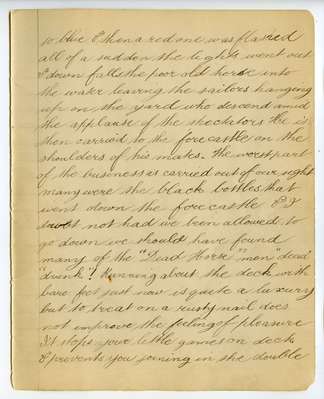 so blue & then a red one was flashed
all of a sudden the lights went out
& down falls the poor old horse into
the water leaving the sailors hanging
up on the yard who descend amid
the applause of the spectators. He is
then carried to the forecastle on the
shoulders of his mates. The worst part
of the business is carried out of our sight
many were the black bottles that
went down the forecastle & I
doubt not had we been allowed to
go down we should have found
many of the "Dead Horse" men "dead
drunk"! Running about the deck with
bare feet just now is quite a luxury
but to treat on a rusty nail does
not improve the feeling of pleasure
It stops your little games on deck
& prevents you joining in the double